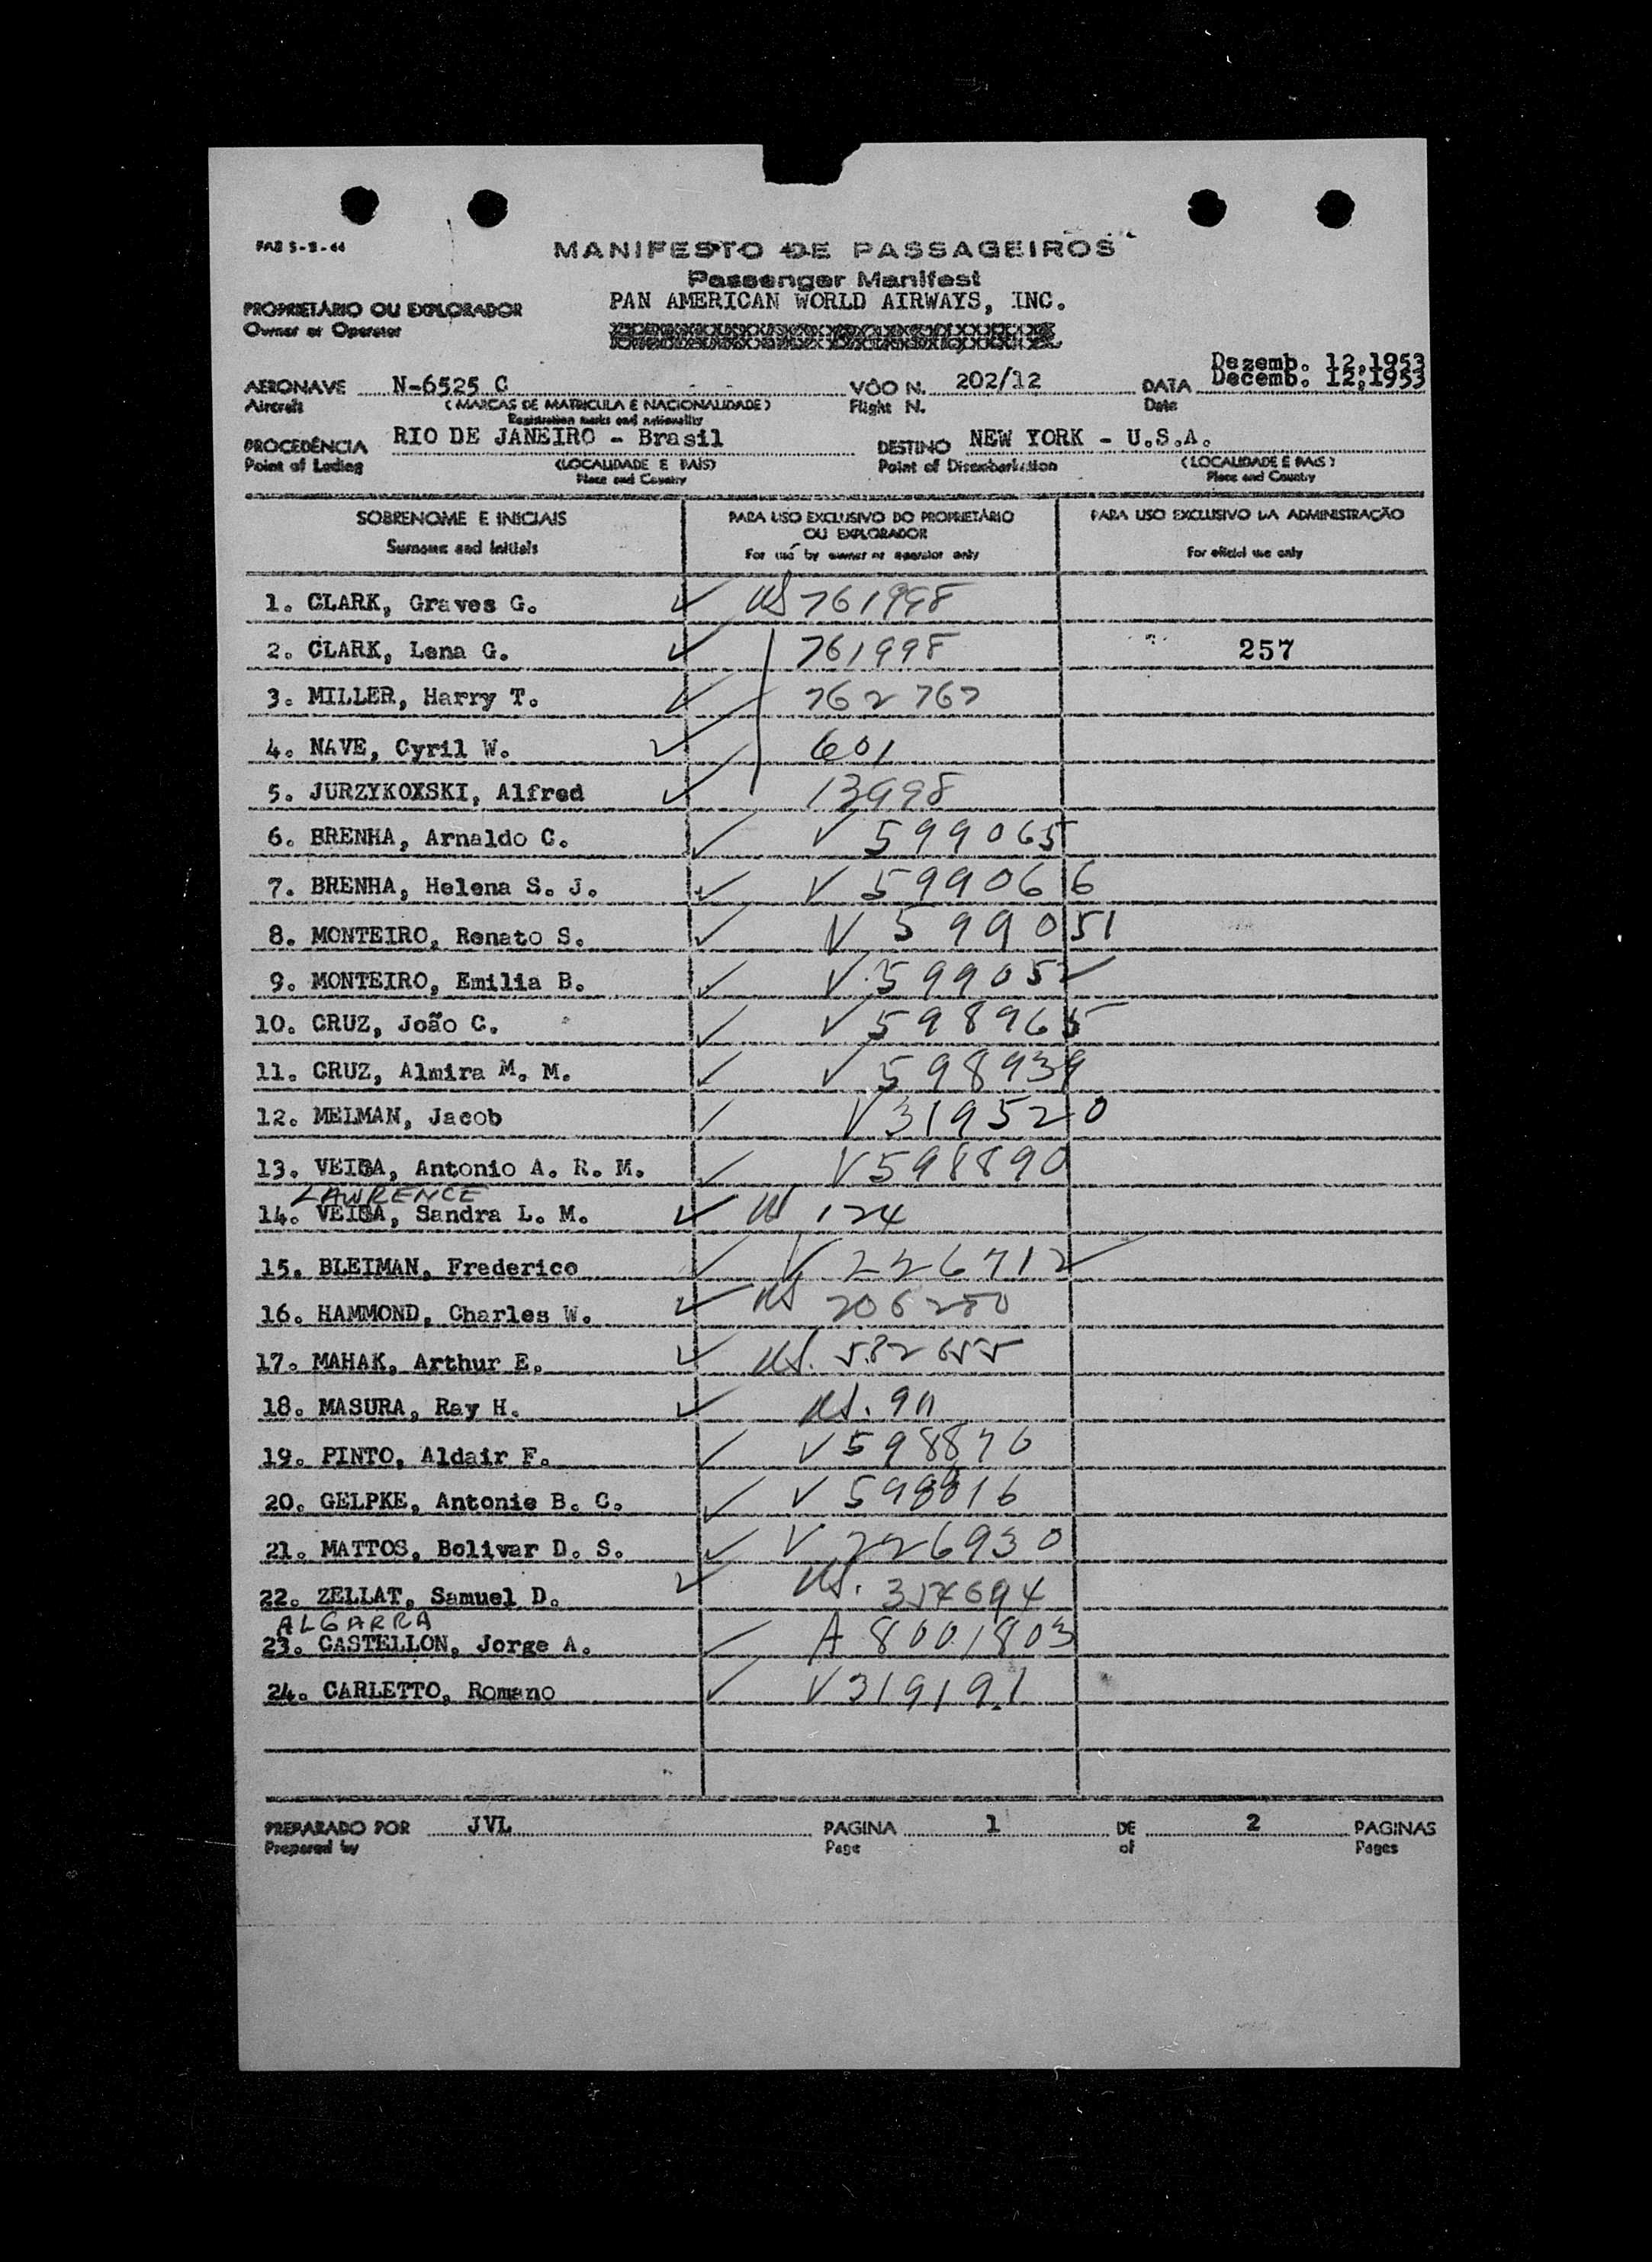 FAB 5-8-44
MANIFESTO DE PASSAGEIROS
Passenger Manifest
PROPRIETÁRIO OU EXPLORADOR
PAN AMERICAN WORLD AIRWAYS, INC.
Owner or Operator
Dezemb. 12,1953
AERONAVE N-6525 C VÔO N. 202/12 DATA Decemb. 12,1953
Aircraft (MARCAS DE MATRICULA E NACIONALIDADE) Flight N. Date
Registration marks and nationality
PROCEDÊNCIA RIO DE JANEIRO - Brasil DESTINO NEW YORK - U.S.A.
Point of Lading (LOCALIDADE E PAÍS) Point of Disembarkation (LOCALIDADE E PAÍS)
Place and Country Place and Country
SOBRENOME E INICIAIS PARA USO EXCLUSIVO DO PROPRIETÁRIO PARA USO EXCLUSIVO DA ADMINISTRAÇÃO
OU EXPLORADOR
Surname and Initials For use by owner or operator only For oficial use only
1. CLARK, Graves G. ✓ US 761998
2. CLARK, Lena G. ✓ 761998 257
3. MILLER, Harry T. ✓ 762767
4. NAVE, Cyril W. ✓ 601
5. JURZYKOXSKI, Alfred ✓ 13998
6. BRENHA, Arnaldo C. ✓ V 599065
7. BRENHA, Helena S. J. ✓ V 599066
8. MONTEIRO, Renato S. ✓ V 599051
9. MONTEIRO, Emilia B. ✓ V 599052
10. CRUZ, João C. ✓ V 598965
11. CRUZ, Almira M. M. ✓ V 598939
12. MELMAN, Jacob ✓ V 319520
13. VEIGA, Antonio A. R. M. ✓ V 598890
LAWRENCE
14. VEIGA, Sandra L. M. ✓ US 124
15. BLEIMAN, Frederico ✓ V 226712
16. HAMMOND, Charles W. ✓ US 206280
17. MAHAK, Arthur E. ✓ US. 582655
18. MASURA, Ray H. ✓ US. 911
19. PINTO, Aldair F. ✓ V 598876
20. GELPKE, Antonie B. C. ✓ V 598816
21. MATTOS, Bolivar D. S. ✓ V 226930
22. ZELLAT, Samuel D. ✓ US.
ALGARRA
23. CASTELLON, Jorge A. ✓ A 8001803
24. CARLETTO, Romano ✓ V 319191
PREPARADO POR JVL PAGINA 1 DE 2 PAGINAS
Prepared by Page of Pages